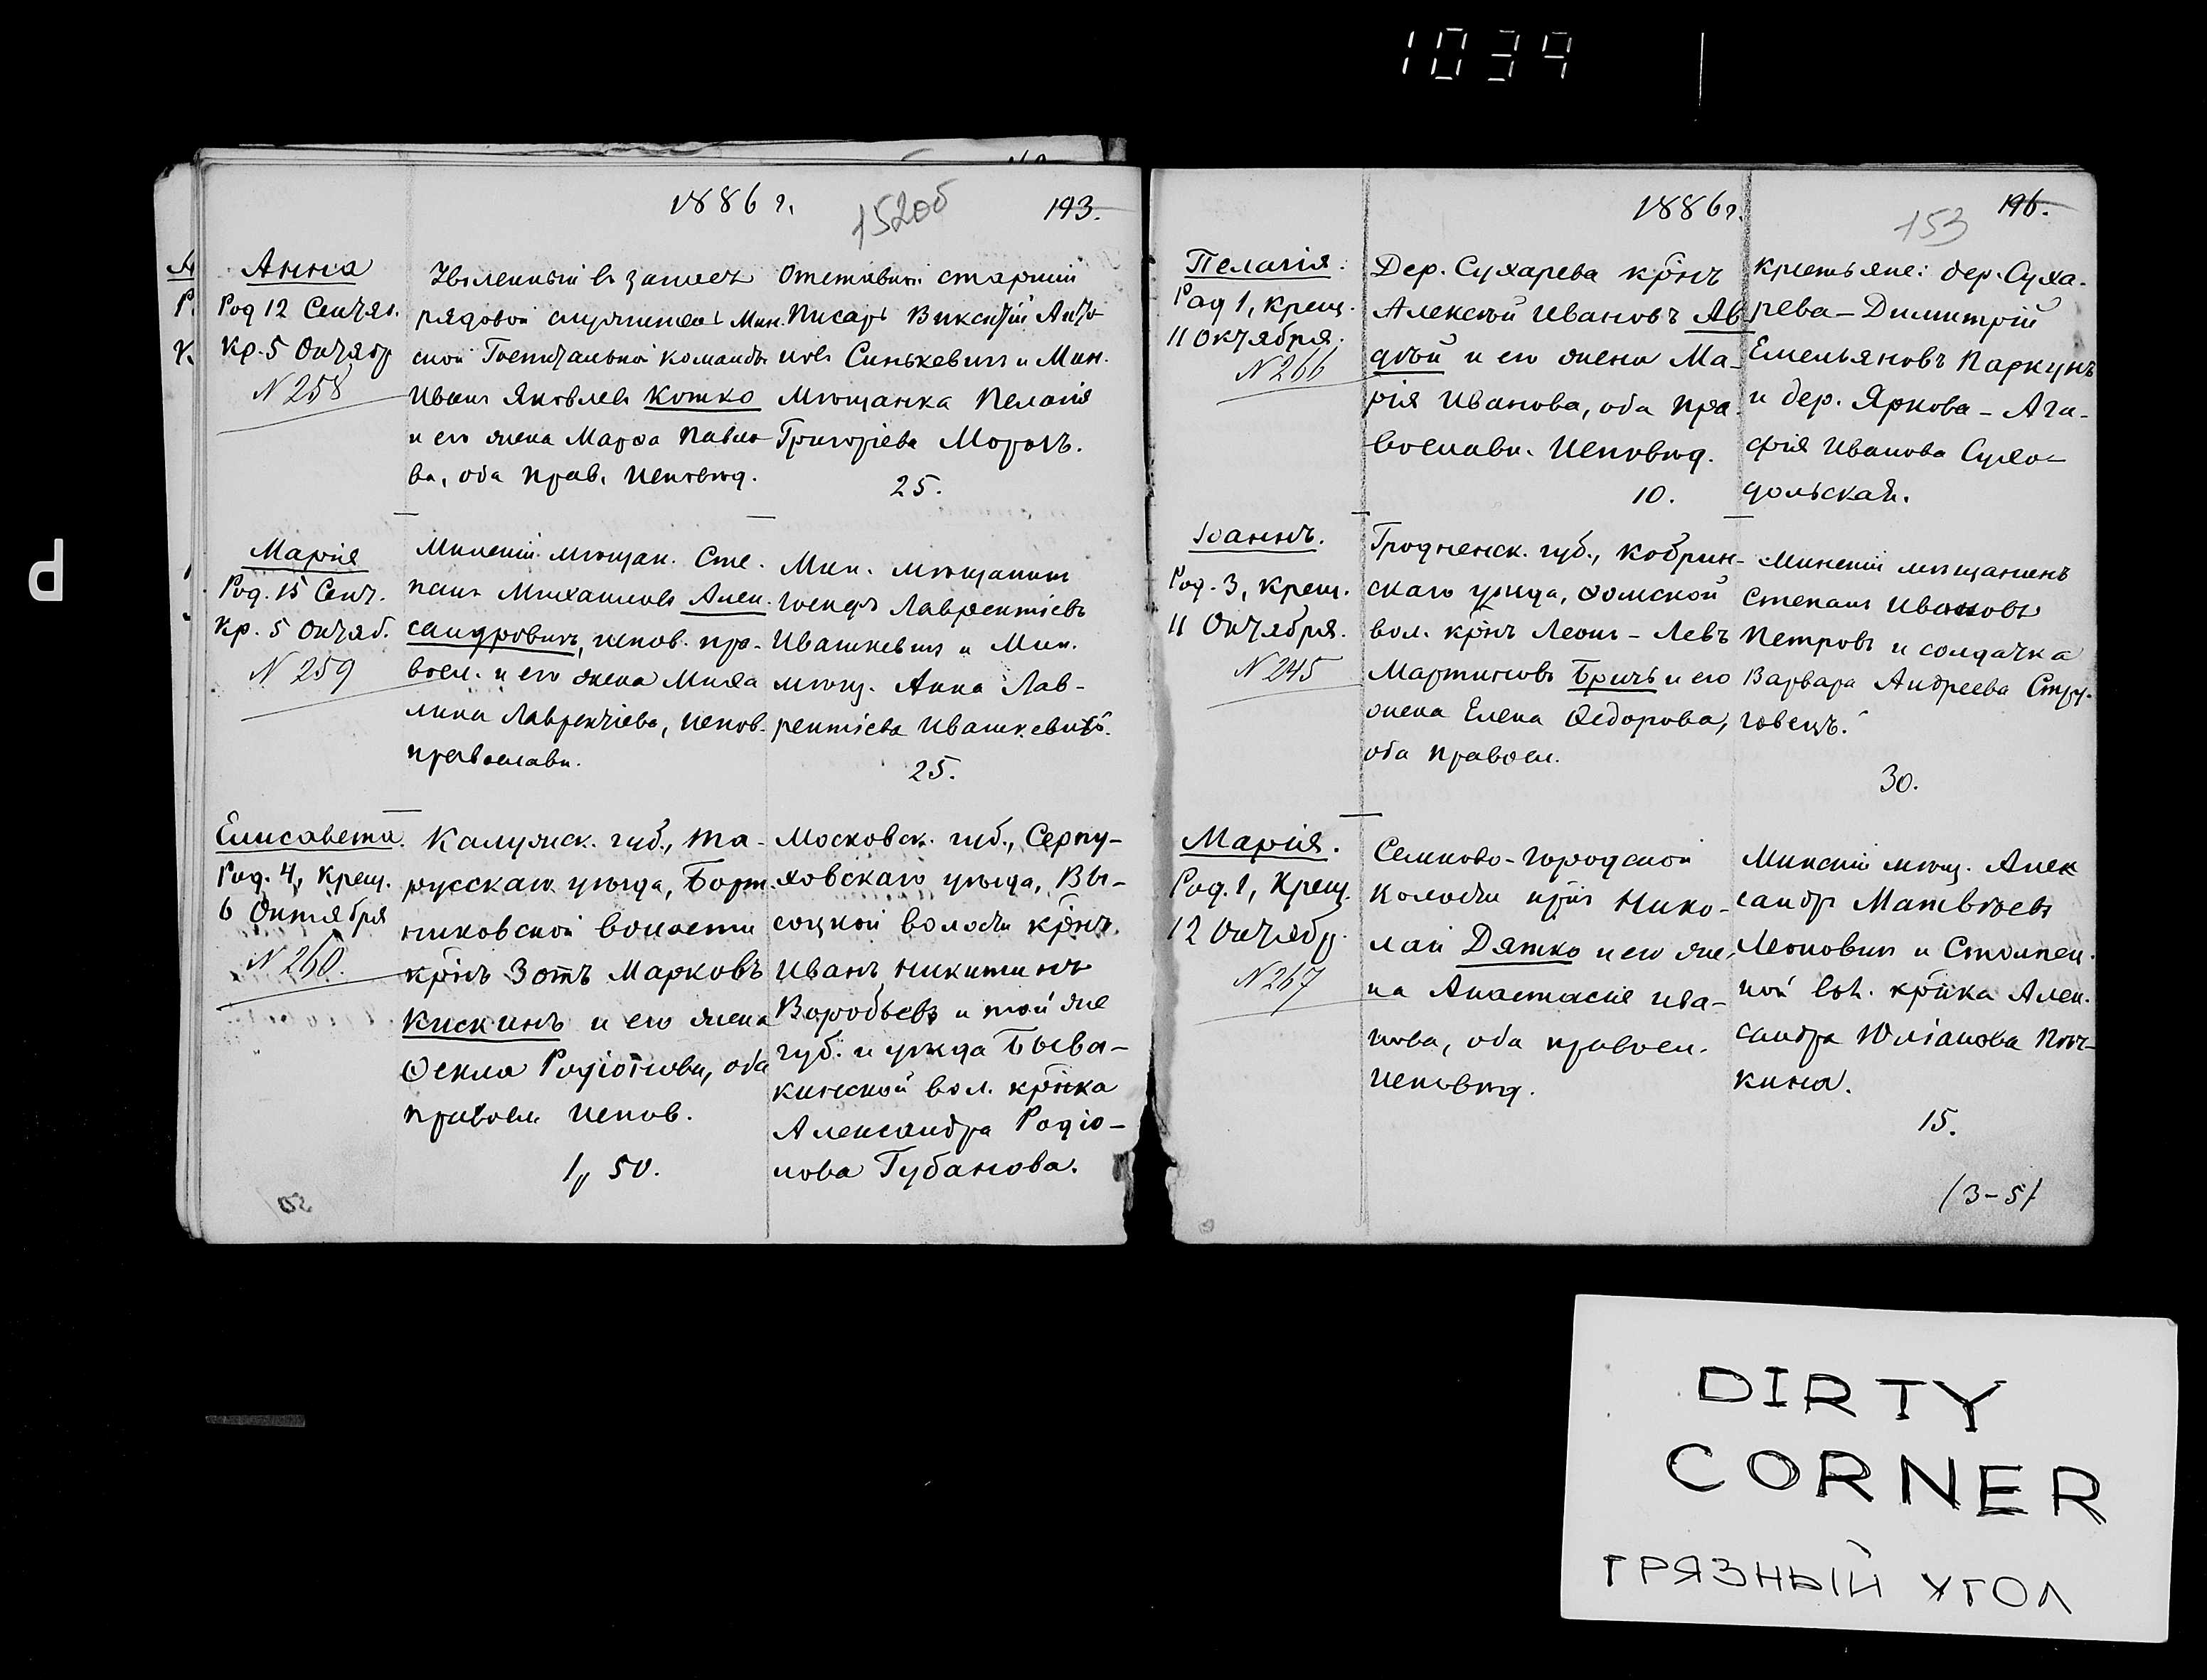 1034
1886 г.
152об
193.
Анна
Род 12 Сентяб.
Кр. 5 Октябр
N 258
Уволенный въ запасъ
рядовой служитель Мин.
ской Госпитальной команды
Иванъ Яковлевъ Котко
и его жена Марѳа Павло
ва, оба прав. исповѣд.
Отставной старшій
Писарь Викентій Анто
новъ Синькевичъ и Мин.
Мѣщанка Пелагія
Григоріева Морозъ.
25.
Марія
Род. 15 Сент.
Кр. 5 Октяб.
N 259
Минскій мѣщан. Сте.
панъ Михайловъ Алек.
сандровичъ, испов. пра.
восл. и его жена Миха
лина Лаврентіева, испов.
православн.
Мин. мѣщанинъ
Лаврентіевъ
Ивашкевичъ и Мин.
мѣщ. Анна Лав-
рентіева Ивашкевичъ.
25.
Елисавета.
Род. 4, Крещ.
6 Октября
N 260.
Калужск. губ., Та-
русскаго уѣзда, Борт.
никовской волости
кр̃нъ Зотъ Марковъ
Кискинъ и его жена
Ѳекла Родіонова, оба
правосл. испов.
1, 50.
Московск. губ., Серпу-
ховскаго уѣзда, Вы-
соцкой волости кр̃нъ.
Иванъ Никитинъ
Воробьевъ и той же
губ. и уѣзда Быва-
кинской вол. кр̃нка
Александра Родіо-
нова Губанова.
1886г.
153
196.
Пелагія.
Род 1, крещ.
11 Октября.
N 266
Дер. Сухарева кр̃нъ
Алексѣй Ивановъ Ав
дѣй и его жена Ма-
рія Иванова, оба пра.
вославн. исповѣд.
10.
Крестьяне: дер. Суха-
рева - Димитрій
Емельяновъ Паркунъ
и дер. Яркова - Ага-
фія Иванова Сухо-
дольская.
Іоаннъ.
Род. 3, крещ.
11 Октября.
N 245
Гродненск. губ., Кобрин-
скаго уѣзда, Хомской
вол. кр̃нъ Леонъ - Левъ
Мартиновъ Бричъ и его
жена Елена Ѳедорова,
оба правосл.
Минскій мѣщанинъ
Степанъ Ивановъ
Петровъ и солдатка
Варвара Андреева Стру.
говецъ.
30.
Марія.
Род. 1, Крещ.
12 Октябр.
N 267
Семково-городской
волости кр̃нъ Нико-
лай Дятко и его же.
на Анастасія Ива-
нова, оба правосл.
исповѣд.
Минскій мѣщ. Алек
сандръ Матвѣевъ
Леоновичъ и Столпец.
кой вол. кр̃нка Алек.
сандра Юліанова Пят-
кина.
15.
(3-5)
DIRTY
CORNER
ГРЯЗНЫЙ УГОЛ